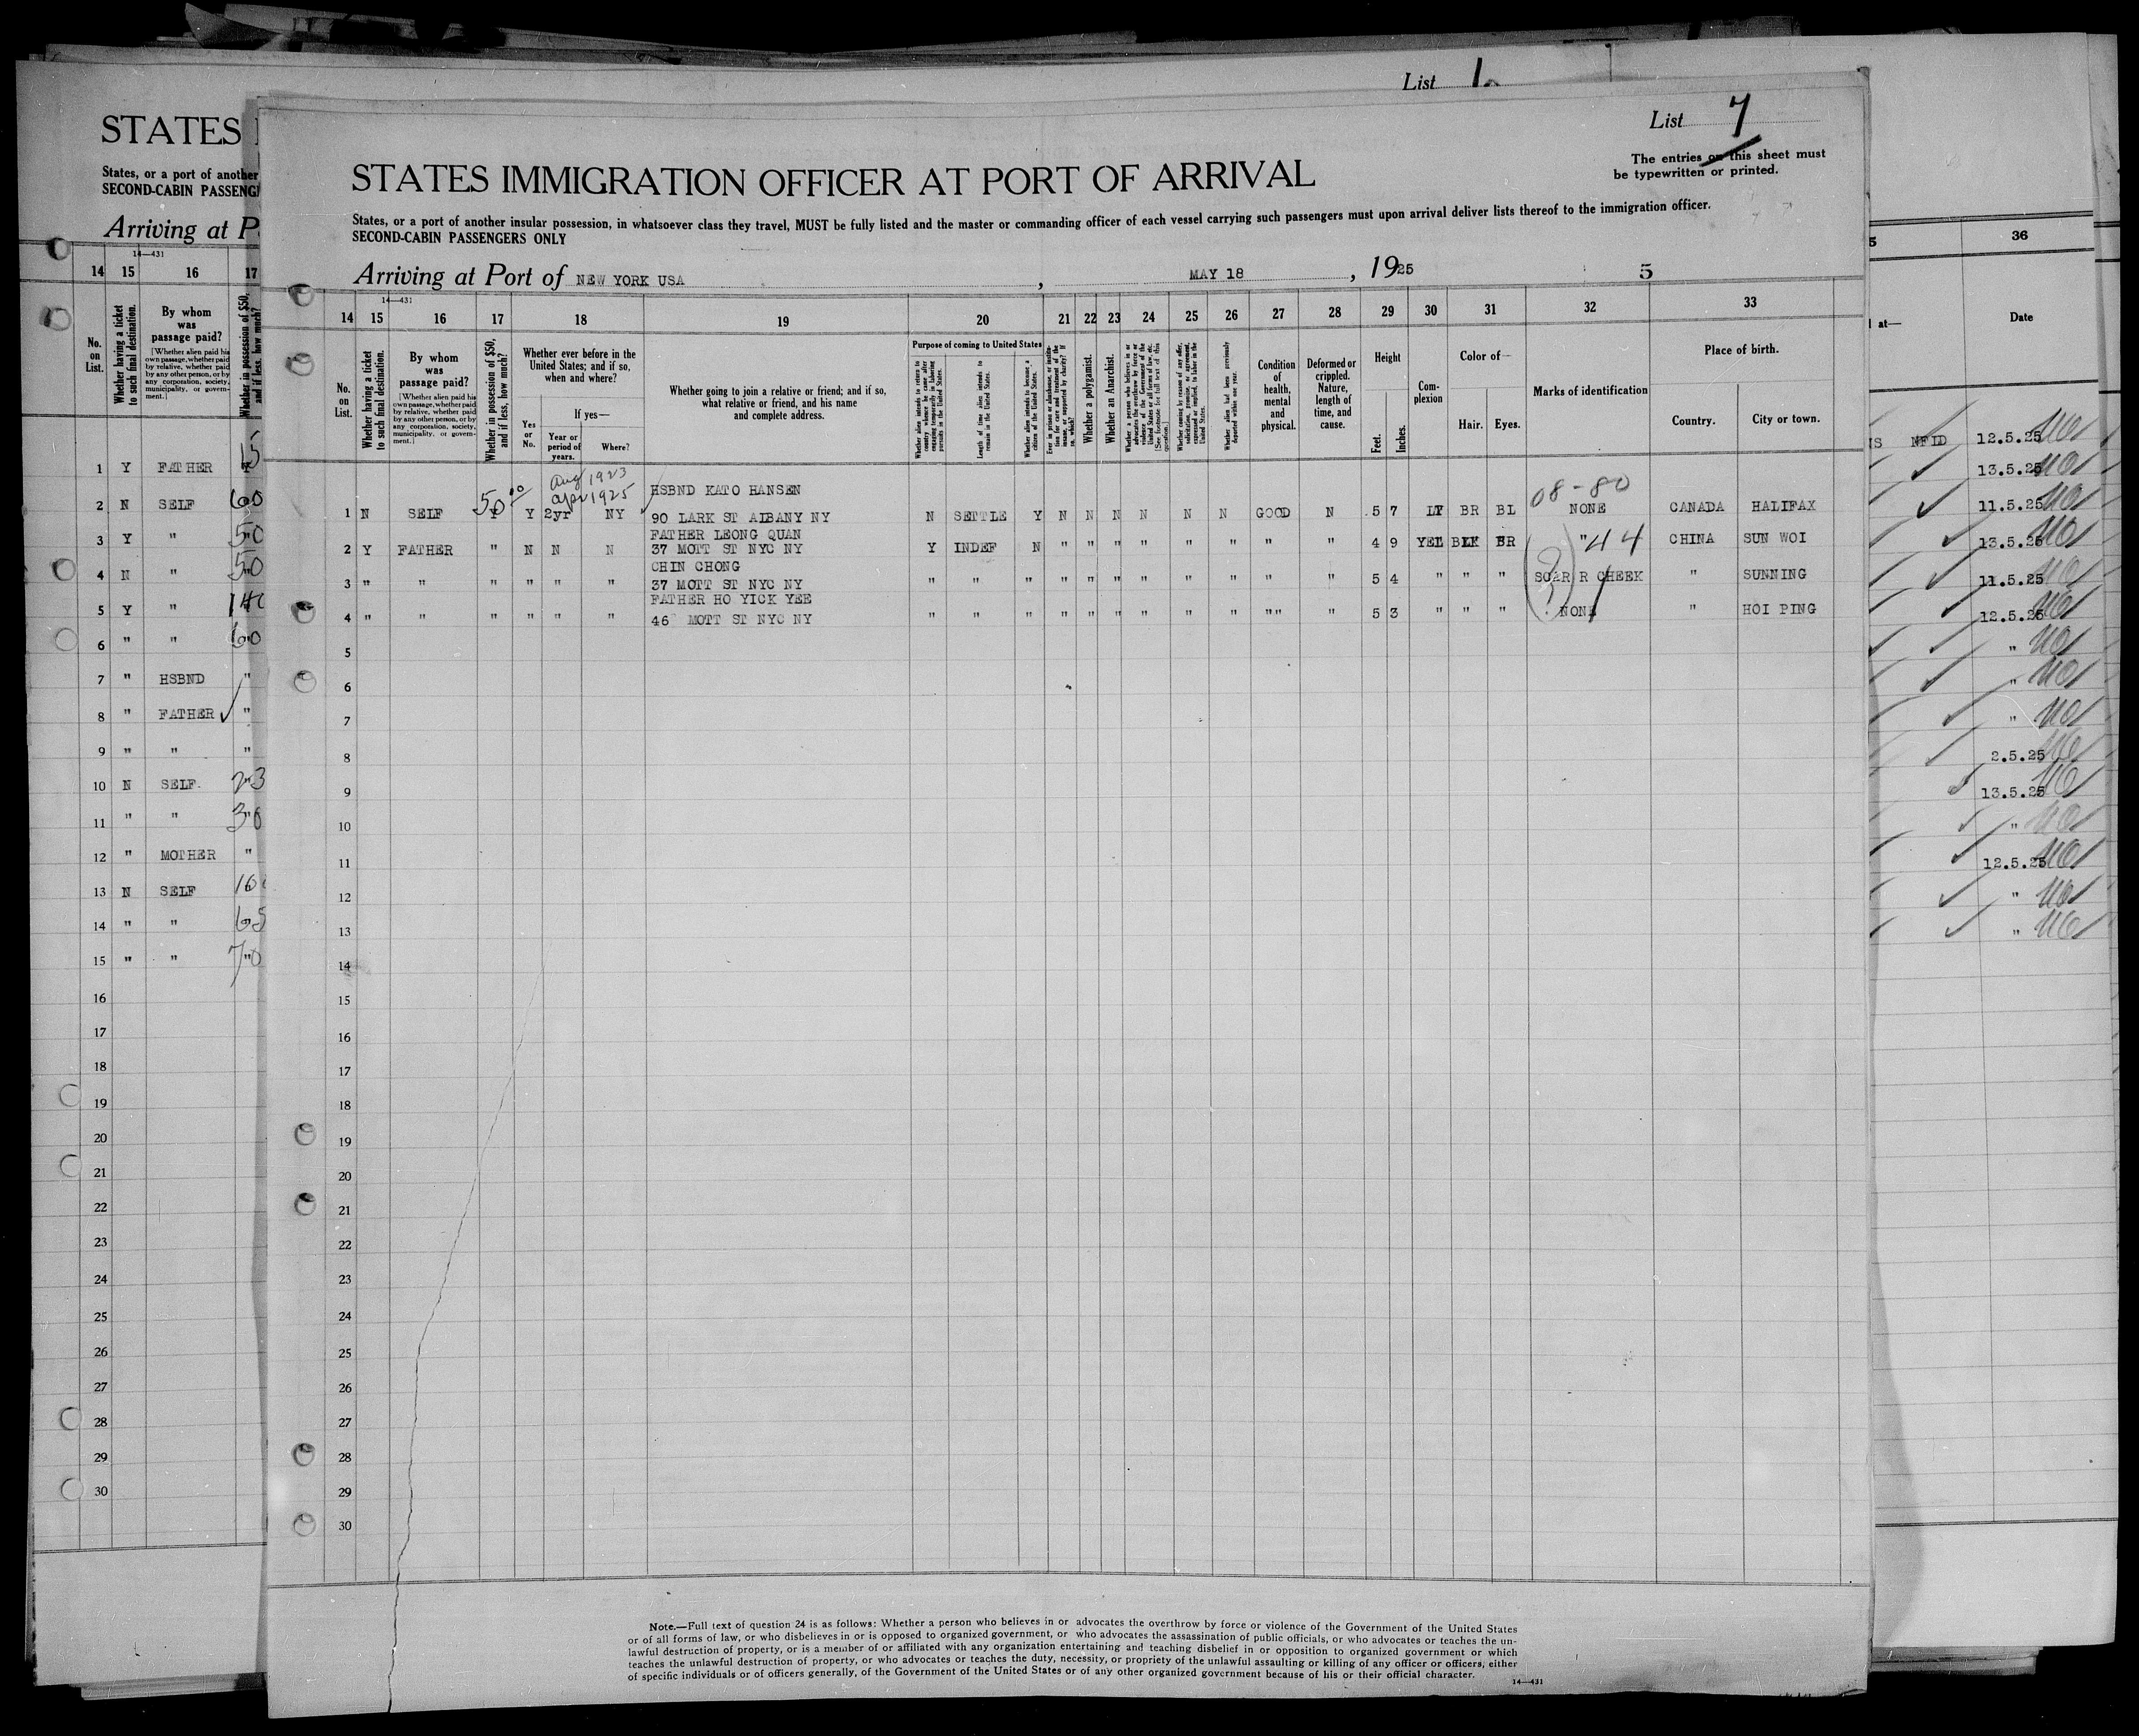 List 1
STATES
States, or a port of another
SECOND-CABIN
Arriving at
14—431
14 15 16 17
No. on List.
Whether having a ticket to such final destination.
By whom was passage paid?
[Whether alien paid his own passage, whether paid by relative, whether paid by any other person, or by any corporation, society, municipality, or government.]
Whether in possession of $50, and if less, how much?
1 Y FATHER 15
2 N SELF 60
3 Y " 50
4 N " 50
5 Y "
6 " " 60
7 " HSBND "
8 " FATHER "
9 " " "
10 N SELF. 23
11 " "
12 " MOTHER "
13 N SELF
14 " " 65
15 " " 70
16
17
18
19
20
21
22
23
24
25
26
27
28
29
30
List 7
The entries on this sheet must
be typewritten or printed.
STATES IMMIGRATION OFFICER AT PORT OF ARRIVAL
States, or a port of another insular possession, in whatsoever class they travel, MUST be fully listed and the master or commanding officer of each vessel carrying such passengers must upon arrival deliver lists thereof to the immigration officer.
SECOND-CABIN PASSENGERS ONLY
Arriving at Port of NEW YORK USA , MAY 18 , 1925 5
14—431
14 15 16 17 18 19 20 21 22 23 24 25 26 27 28 29 30 31 32 33
No. on List.
Whether having a ticket to such final destination.
By whom was passage paid?
[Whether alien paid his own passage, whether paid by relative, whether paid by any other person, or by any corporation, society, municipality, or government.]
Whether in possession of $50, and if less, how much?
Whether ever before in the United States; and if so, when and where?
Yes or No.
If yes—
Year or period of years.
Where?
Whether going to join a relative or friend; and if so, what relative or friend, and his name and complete address.
Purpose of coming to United States
Whether alien intends to return to country whence he came after engaging temporarily in laboring pursuits in the United States.
Length of time alien intends to remain in the United States.
Whether alien intends to become a citizen of the United States.
Ever in prison or almshouse, or institution for care and treatment of the insane, or supported by charity? If so, which?
Whether a polygamist.
Whether an Anarchist.
Whether a person who believes in or advocates the overthrow by force or violence of the Government of the United States or all forms of law, etc. [See footnote for full text of this question.]
Whether coming by reason of any offer, solicitation, promise, or agreement, expressed or implied, to labor in the United States.
Whether alien had been previously deported within one year.
Condition of health, mental and physical.
Deformed or crippled. Nature, length of time, and cause.
Height
Feet. Inches.
Complexion
Color of—
Hair. Eyes.
Marks of identification
Place of birth.
Country. City or town.
Aug 1923
50.00 apr 1925 HSBND KATO HANSEN 08-80
1 N SELF Y Y 2yr NY 90 LARK ST AlBANY NY N SETTLE Y N N N N N N GOOD N 5 7 LT BR BL NONE CANADA HALIFAX
FATHER LEONG QUAN
2 Y FATHER " N N N 37 MOTT ST NYC NY Y INDEF N " " " " " " " " 4 9 YEL BLK BR " 44 CHINA SUN WOI
CHIN CHONG
3 " " " " " " 37 MOTT ST NYC NY " " " " " " " " " " " 5 4 " " " SCAR R CHEEK " SUNNING
FATHER HO YICK YEE
4 " " " " " " 46 MOTT ST NYC NY " " " " " " " " " "" " 5 3 " " " NONE " HOI PING
5
6
7
8
9
10
11
12
13
14
15
16
17
18
19
20
21
22
23
24
25
26
27
28
29
30
Note.—Full text of question 24 is as follows: Whether a person who believes in or advocates the overthrow by force or violence of the Government of the United States
or of all forms of law, or who disbelieves in or is opposed to organized government, or who advocates the assassination of public officials, or who advocates or teaches the un-
lawful destruction of property, or is a member of or affiliated with any organization entertaining and teaching disbelief in or opposition to organized government or which
teaches the unlawful destruction of property, or who advocates or teaches the duty, necessity, or propriety of the unlawful assaulting or killing of any officer or officers, either
of specific individuals or of officers generally, of the Government of the United States or of any other organized government because of his or their official character.
14—431
36
at— Date
NFLD 12.5.25
13.5.25
11.5.25
13.5.25
11.5.25
12.5.25
"
"
"
2.5.25
13.5.25
"
12.5.25
"
"